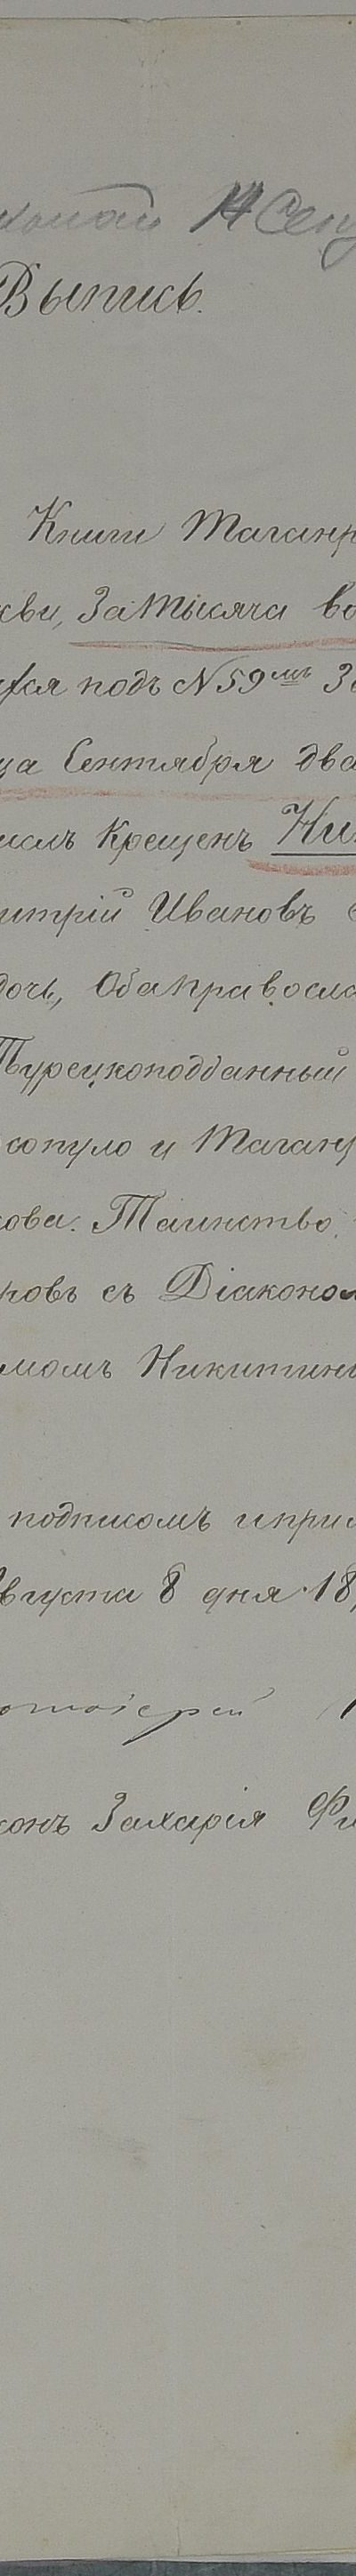 Выпись.
Книги Таганр
кви, За Тысяча во
тся подъ №59мъ За
ца Сентября два
исмъ Крещенъ Ни
итрій Ивановъ С
дочь, Оба Правосла
Турецкоподданный
сопуло и Таганр
кова. Таинство
ровъ съ Діакономъ
момъ Никитины
подписомъ и прил
Августа 8 дня 18
отоіерей
конъ Захарія Фи